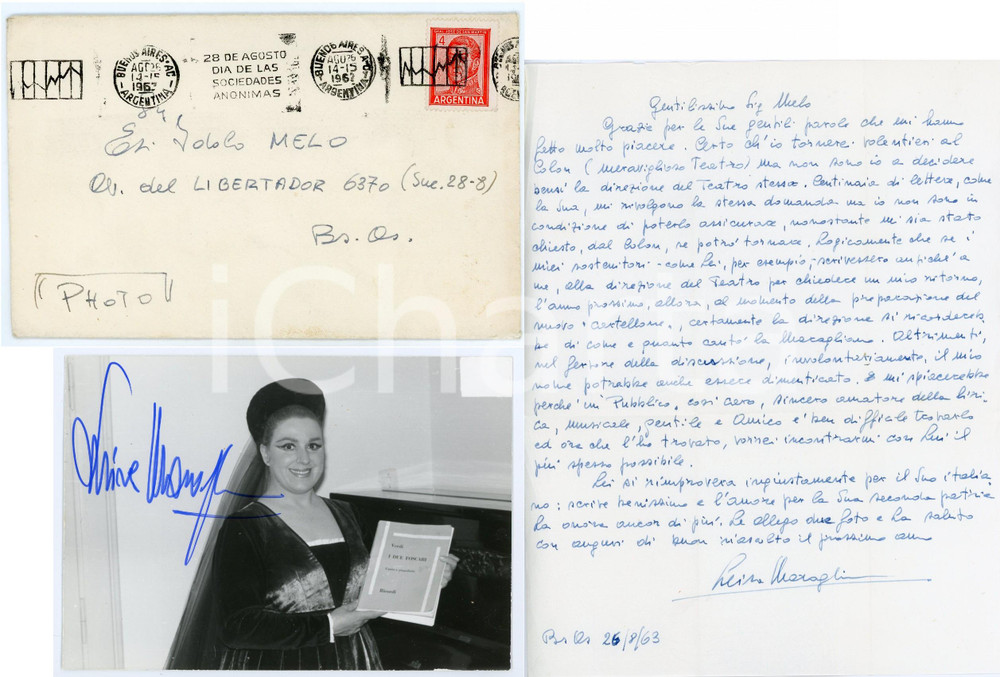 BUENOS AIRES
AGO 26
14-15
1963
ARGENTINA
28 DE AGOSTO
DIA DE LAS
SOCIEDADES
ANONIMAS
BUENOS AIRES
AGO 26
14-15
1963
ARGENTINA
4
ARGENTINA
MELO
Av. del LIBERTADOR 6370 (Suc. 28-8)
Bs. As.
"PHOTO"
iCha
Verdi
I DUE FOSCARI
Ricordi
Gentilissimo Sig Melo
Grazie per le Sue gentili parole che mi hanno
fatto molto piacere. Certo ch'io tornerei volentieri al
Colon (meraviglioso Teatro) ma non sono io a decidere
bensì la direzione del Teatro stesso. Centinaia di lettere, come
la Sua, mi rivolgono la stessa domanda ma io non sono in
condizione di poterlo assicurare, nonostante mi sia stato
chiesto, dal Colon, se potrò tornare. Logicamente che se i
miei sostenitori - come Lei, per esempio, - scrivessero anzichè a
me, alla direzione del Teatro per chiedere un mio ritorno,
l'anno prossimo, allora, al momento della preparazione del
nuovo "cartellone", certamente la direzione si ricordereb,
be di come e quanto cantò la Maragliano. Altrimenti,
nel fervore della discussione, involontariamente, il mio
nome potrebbe anche essere dimenticato. E mi spiacerebbe
perchè un Pubblico, così caro, sincero amatore della liri,
ca, musicale, gentile e Amico è ben difficile trovarlo
ed ora che l'ho trovato, vorrei incontrarmi con Lui il
più spesso possibile.
Lei si rimprovera ingiustamente per il Suo italia,
no: scrive benissimo e l'amore per la Sua seconda patria
La onora ancor di più. Le allego due foto e La saluto
con auguri di buon riascolto il prossimo anno
Bs As 26/8/63